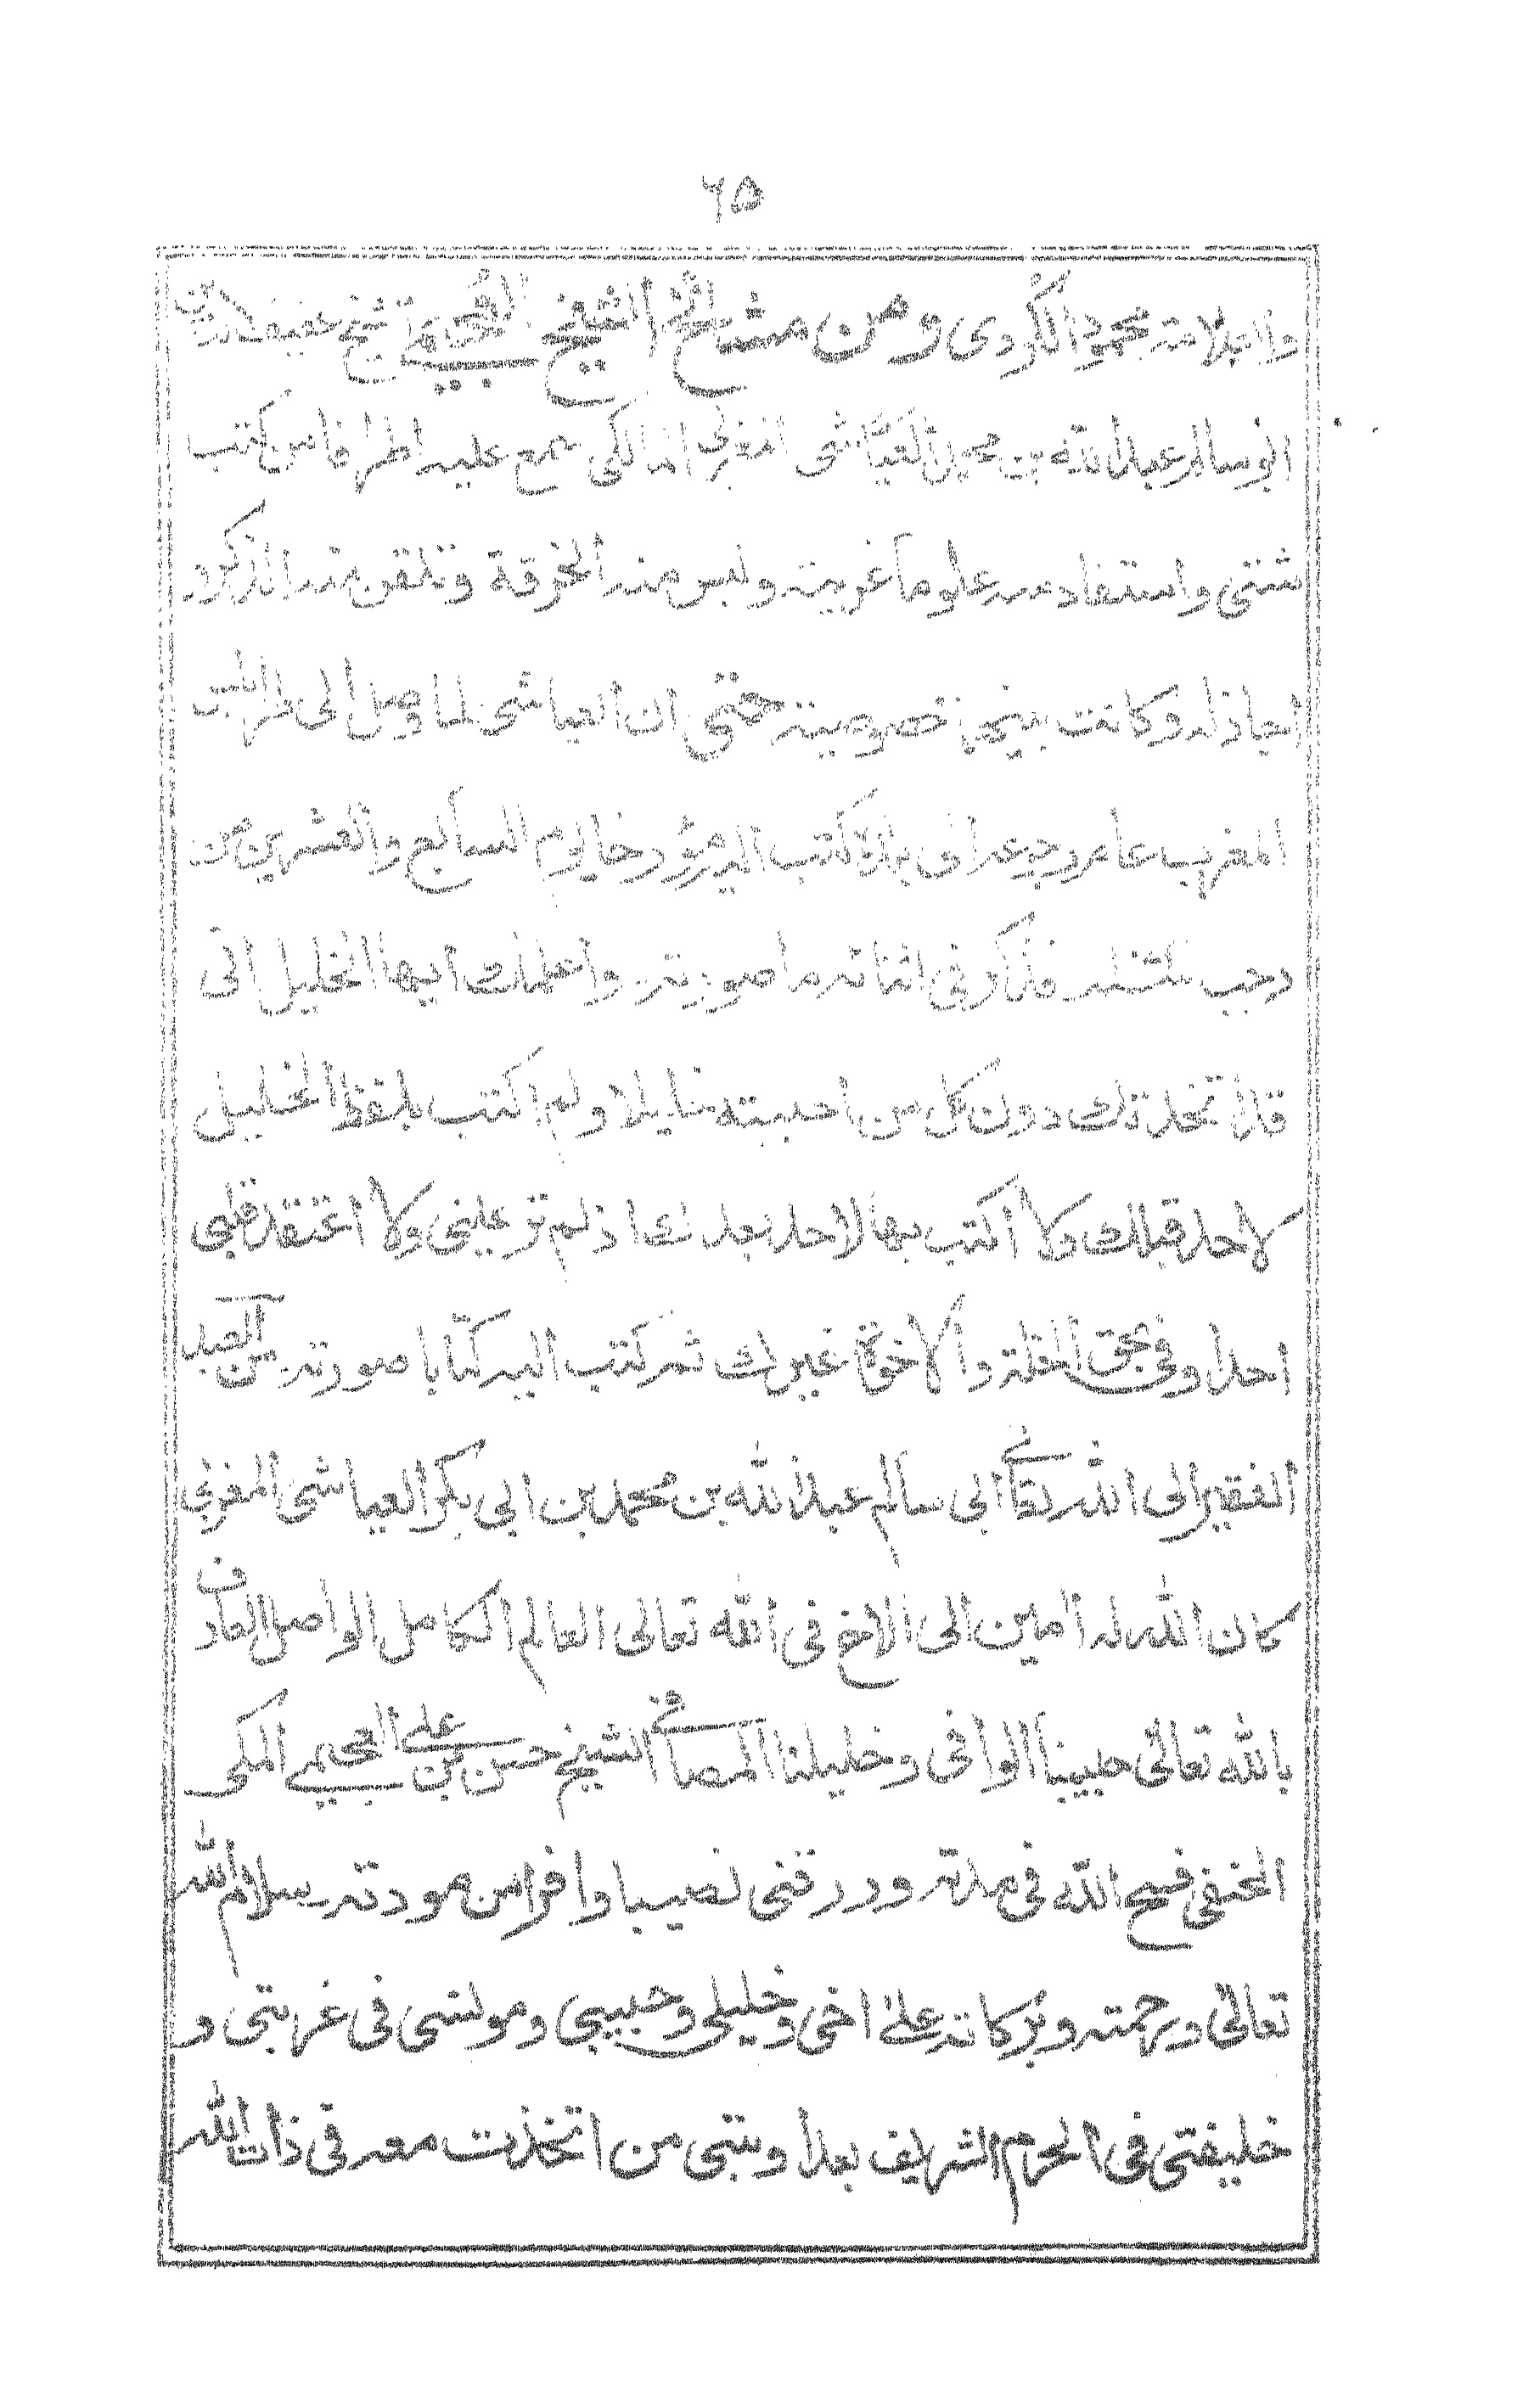 ٦٥
والعلامة محمود الكردى ومن مشائخ الشيخ العجيمى شيخ
ابو سالم عبد الله بن محمد العياشى المغربى المالكى سمع عليه اطرافا من كتب
شتى واستفاد منه علوما غريبة ولبس منه الخرقة وتلقن منه الذكر و
اجاز له وكانت بينهما خصوصية حتى ان العياشى لما وصل الى طرابلس
المغرب عام رجوعه الى بلاده كتب اليه مؤرخا ليوم السابع والعشرين من
رجب فذكر فى اثنائه ما صورته واعلمك ايها الخليل انى
قد تخذتك دون كل من احببته خليلا ولم اكتب بلفظ الخليل
لاحد قبلك ولا اكتب بها لاحد بعدك اذ لم تر عينى ولا اعتقد قلبى
احدا وفى بحق الخلة والاخوة غيرك ثم كتب اليه كتابا صورته من العبد
الفقير الى الله تعالى ابى سالم عبد الله بن محمد بن ابى بكر العياشى المغربى
كان الله له امين الى الاخ فى الله تعالى العالم الكامل الواصل العارف
بالله تعالى حبيبنا الوافى وخليلنا المصافى الشيخ حسن بن على العجيمى المكى
الحنفى فسح الله فى مدته ورزقنى نصيبا وافرا من مودته سلام الله
تعالى ورحمته وبركاته على اخى وخليلى وحبيبى ومونسى فى غربتى و
خليفتى فى الحرم الشريف بعد اوبتى من اتخذت معه فى ذات الله